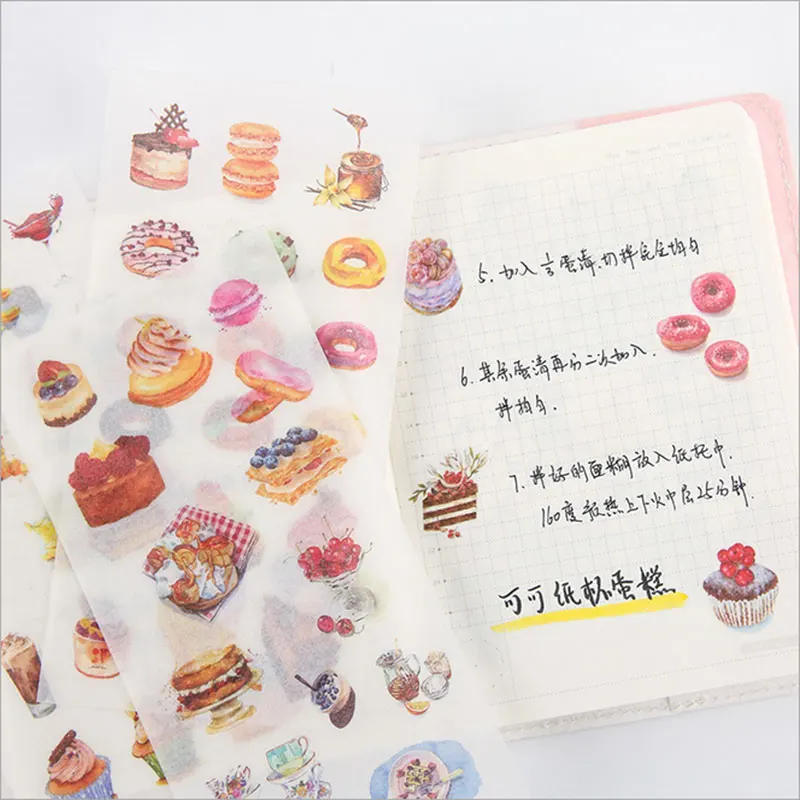 5. 加入⅓蛋清,切拌完全均匀
6. 其余蛋清再分二次加入.
拌均匀.
7. 拌好的面糊放入纸托中.
160度预热上下火中层25分钟.
可可纸杯蛋糕